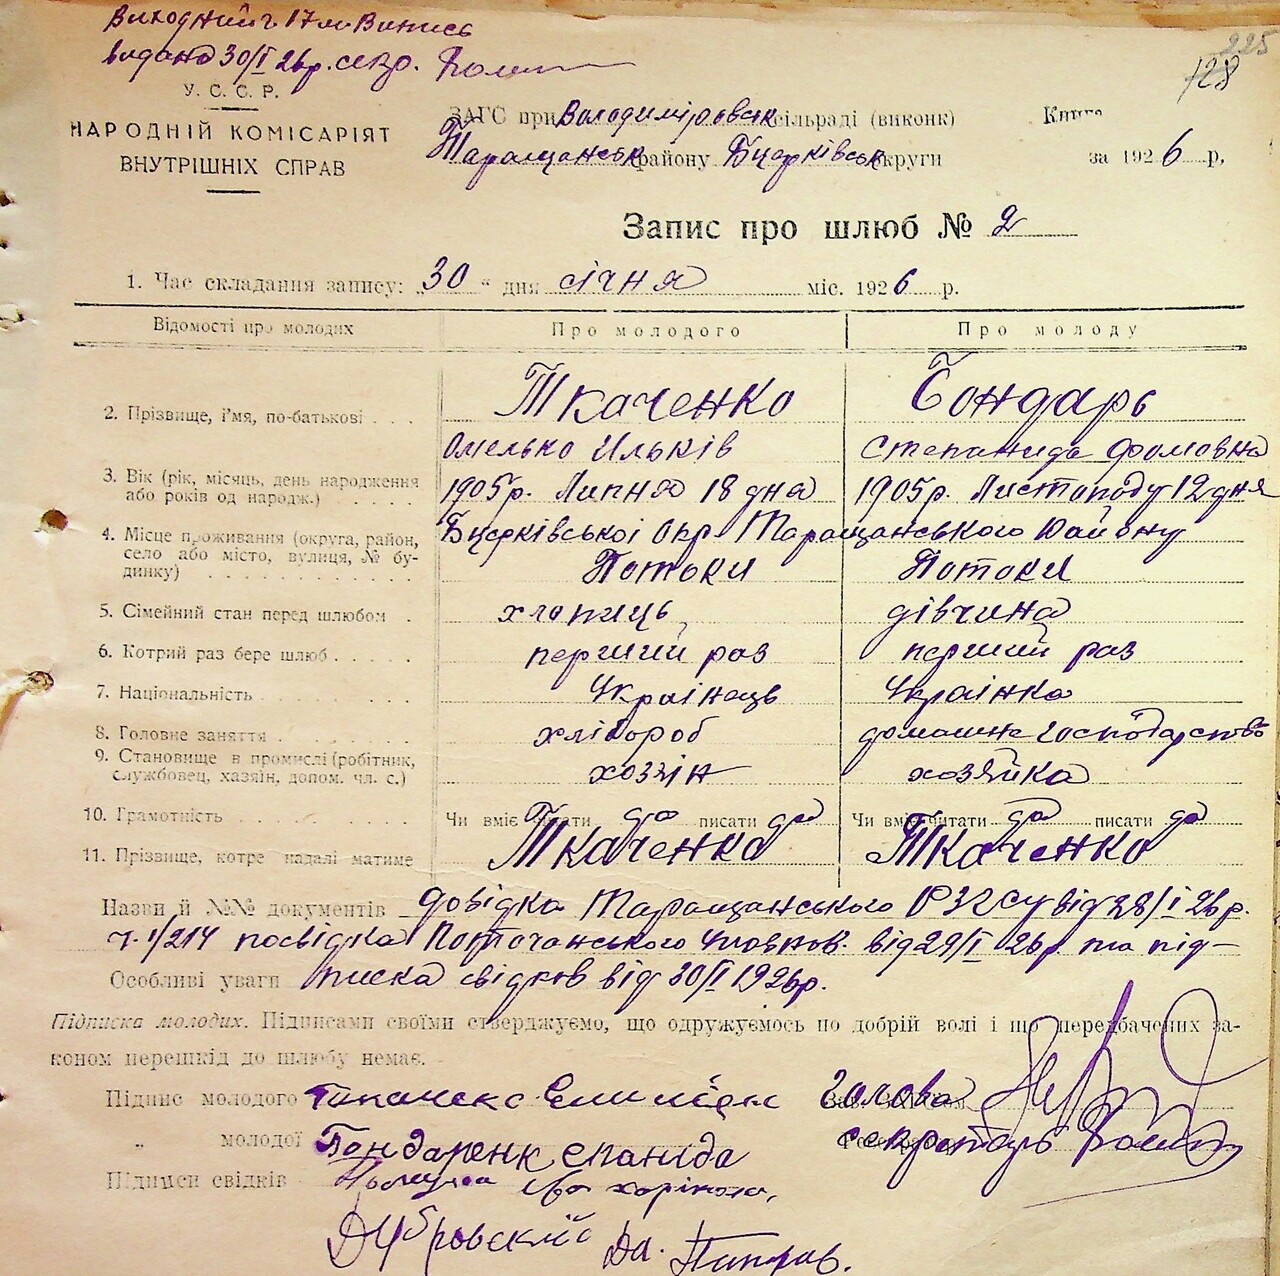 Виходний ч 17 м. Випись
видано 30/I 26р. секр.
225
128
У. С. С. Р.
НАРОДНІЙ КОМІСАРІЯТ
ВНУТРІШНІХ СПРАВ
ЗАГС при Володиміровськ сільраді (виконк) Книга
Таращанськ району Бцерківськ округи за 1926 р.
Запис про шлюб № 2
1. Час складання запису: „30 “ дня січня міс. 1926 р.
Відомості про молодих Про молодого Про молоду
2. Прізвище, і'мя, по-батькові . . . Ткаченко Бондарь
Омелько Ильків Степанида Фомовна
3. Вік (рік, місяць, день народження або років од народж.) 1905р. Липня 18 дня 1905р. Листопаду 12 дня
4. Місце проживання (округа, район, село або місто, вулиця, № будинку) Бцерківської Окр Таращанського Району
Потоки Потоки
5. Сімейний стан перед шлюбом . хлопиць дівчина
6. Котрий раз бере шлюб . . . . . перший раз перший раз
7. Національність . . . Українець Українка
8. Головне заняття . . . хлібороб домашнє господарство
9. Становище в промислі (робітник, службовец, хазяїн, допом. чл. с.) хозяін хозяйка
10. Грамотність Чи вміє читати да писати да Чи вміє читати да писати да
11. Прізвище, котре надалі матиме Ткаченко Ткаченко
Назви й №№ документів довідка Таращанського РЗАГСу від 28/I 26р.
ч. 1/214 посвідка Поточанського Уповнов. від 29/I 26р. та під-
Особливі уваги писка свідков від 30/I 1926р.
Підписка молодих. Підписами своїми стверджуємо, що одружуємось по добрій волі і що передбачених за-
коном перешкід до шлюбу немає.
Підпис молодого Голова
„ молодої Бондаренк епаніда секретарь
Підписи свідків
Дубровский